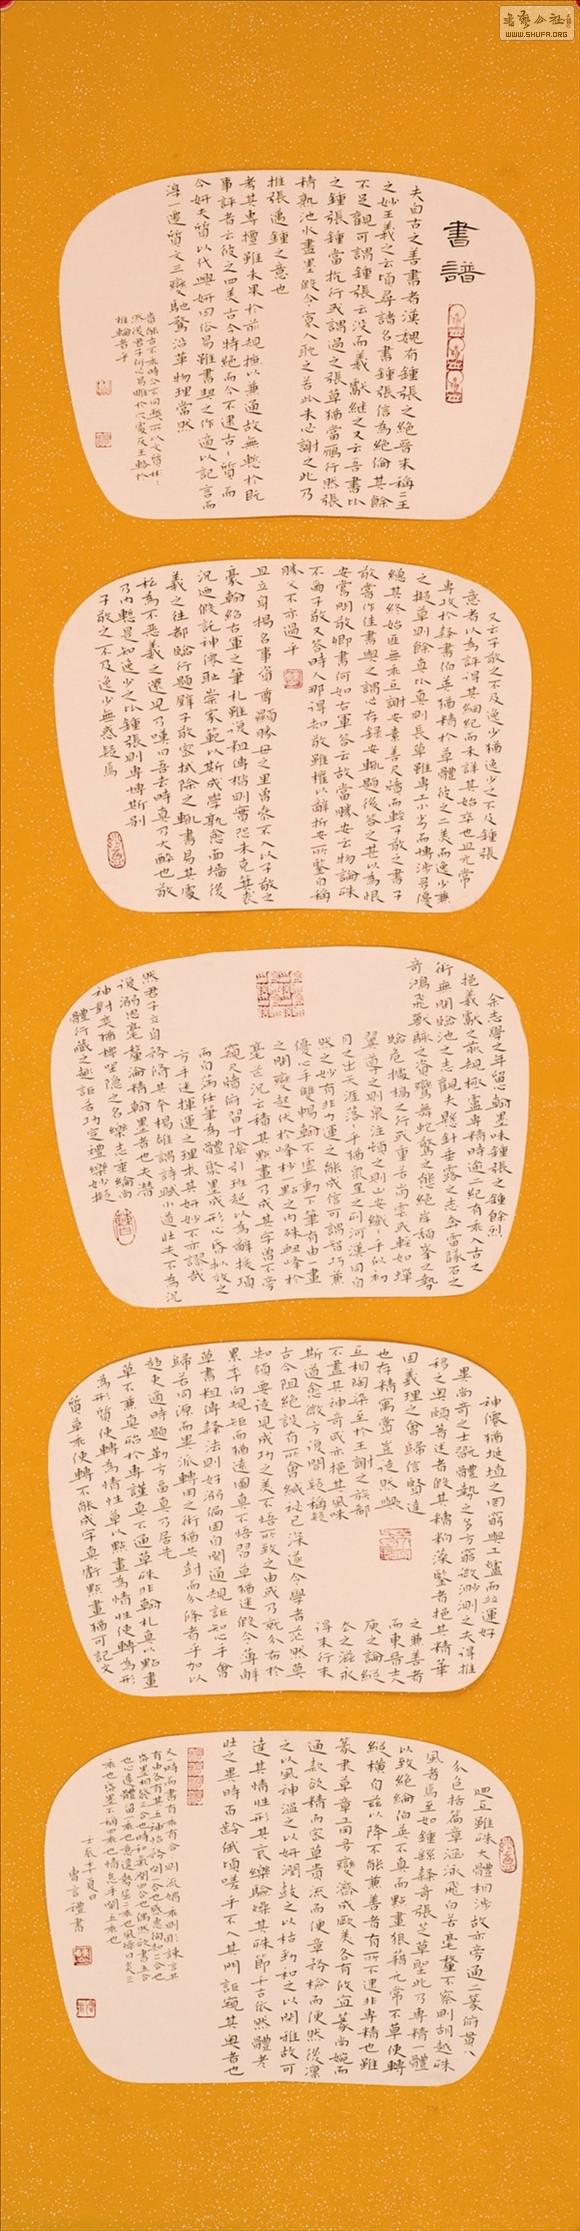 書譜
夫自古之善書者漢魏有鍾張之絕晉末稱二王
之妙王羲之云頃尋諸名書鍾張信為絕倫其餘
不足觀可謂鍾張云沒而羲獻繼之又云吾書比
之鍾張鍾當抗行或謂過之張草猶當鴈行然張
精熟池水盡墨假令寡人耽之若此未必謝之此乃
推張邁鍾之意也
考其專擅雖未果於前規摭以兼通故無慙於即
事評者云彼之四美古今特絕而今不逮古〻質而
今妍夫質以代興妍因俗易雖書契之作適以記言而
淳一遷質文三變馳騖沿革物理常然
貴能古不乖時今不同弊所以文質彬〻
然後君子何必易雕於穴處反玉輅於
椎輪者乎
又云子敬之不及逸少猶逸少之不及鍾張
意者以為評得其綱紀而未詳其始卒也且元常
專攻於隸書伯英猶精於草體彼之二美而逸少兼
之擬草則餘真以真則長草雖專工小劣而博涉多優
總其終始匪無乖互謝安素善尺牘而輕子敬之書子
敬嘗作佳書與之謂必存錄安輒題後答之甚以為恨
安嘗問敬卿書何如右軍答云故當勝安云物論殊
不爾子敬又答時人那得知敬雖權以辭折安所鑒自稱
勝父不亦過乎
且立身揚名事資尊顯勝母之里曾參不入以子敬之
豪翰紹右軍之筆札雖復粗傳楷則實恐未克箕裘
況迺假託神仙恥崇家範以斯成學孰愈面墻後
羲之往都臨行題壁子敬密拭除之輒書易其處
私為不惡羲之還見乃嘆曰吾去時真乃大醉也敬
乃內慙是知逸少之以鍾張則專博斯別
子敬之不及逸少無惑疑焉
余志學之年留心翰墨味鍾張之鍾餘烈
挹羲獻之前規極慮專精時逾二紀有乖入木之
術無間臨池之志觀夫懸針垂露之異奔雷墜石之
奇鴻飛獸駭之資鸞舞蛇驚之態絕岸頹峯之勢
臨危據槁之形或重若崩雲或輕如蟬
翼導之則泉注頓之則山安纖〻乎似初
月之出天涯落〻乎猶眾星之列河漢同自
然之妙有非力運之能成信可謂智巧兼
優心手雙暢翰不虛動下筆有由一畫
之間變起伏於峰杪一點之內殊衄挫於
毫芒況云積其點畫乃成其字曾不旁
窺尺牘俯習寸陰引班超以為辭援項
而自滿任筆為體聚墨成形心昏擬效之
方手迷揮運之理求其妍妙不亦謬哉
然君子立身務脩其本楊雄謂詩賦小道壯夫不為況
復溺思毫釐淪精翰墨者也夫潛
神對奕猶標坐隱之名樂志垂綸尚
體行藏之趣詎若功定禮樂妙擬
神仙猶埏埴之罔窮與工爐而並運好
異尚奇之士翫體勢之多方窮微測妙之夫得推
移之奧賾著述者假其糟粕藻鑒者挹其精華
固義理之會歸信賢達
之兼善者
也存精寓賞豈徒然與
而東晉士人
互相陶染至於王謝之族郗
庾之論縱
不盡其神奇咸亦挹其風味
去之滋永
斯道愈微方復聞疑稱疑
得末行末
古今阻絕設有所會緘秘已深遂令學者茫然莫
知領要徒見成功之美不悟所致之由或乃就分布於
累年向規矩而猶遠圖真不悟習草猶迷假令薄解
草書粗傳隸法則好溺偏固自閡通規詎知心手會
歸若同源而異派轉用之術猶共樹而分條者乎加以
趨變適時題勒方畐真乃居先
草不兼真殆於專謹真不通草殊非翰札真以點畫
為形質使轉為情性草以點畫為情性使轉為形
質草乖使轉不能成字真虧點畫猶可記文
迴互雖殊大體相涉故亦旁通二篆俯貫八
分包括篇章涵泳飛白若毫釐不察則胡越殊
風者焉至如鍾繇隸奇張芝草聖此乃專精一體
以致絕倫伯英不真而點畫狼藉元常不草使轉
縱橫自茲以降不能兼善者有所不逮非專精也雖
篆隸草章工用多變濟成厥美各有攸宜篆尚婉而
通隸欲精而密草貴流而便章務檢而便然後凜
之以風神溫之以妍潤鼓之以枯勁和之以閑雅故可
達其情性形其哀樂驗燥其殊節千古依然體老
壯之異時百齡俄頃嗟乎不入其門詎窺其奧者也
壬辰年夏日
書言禮書
WWW.SHUFA.ORG